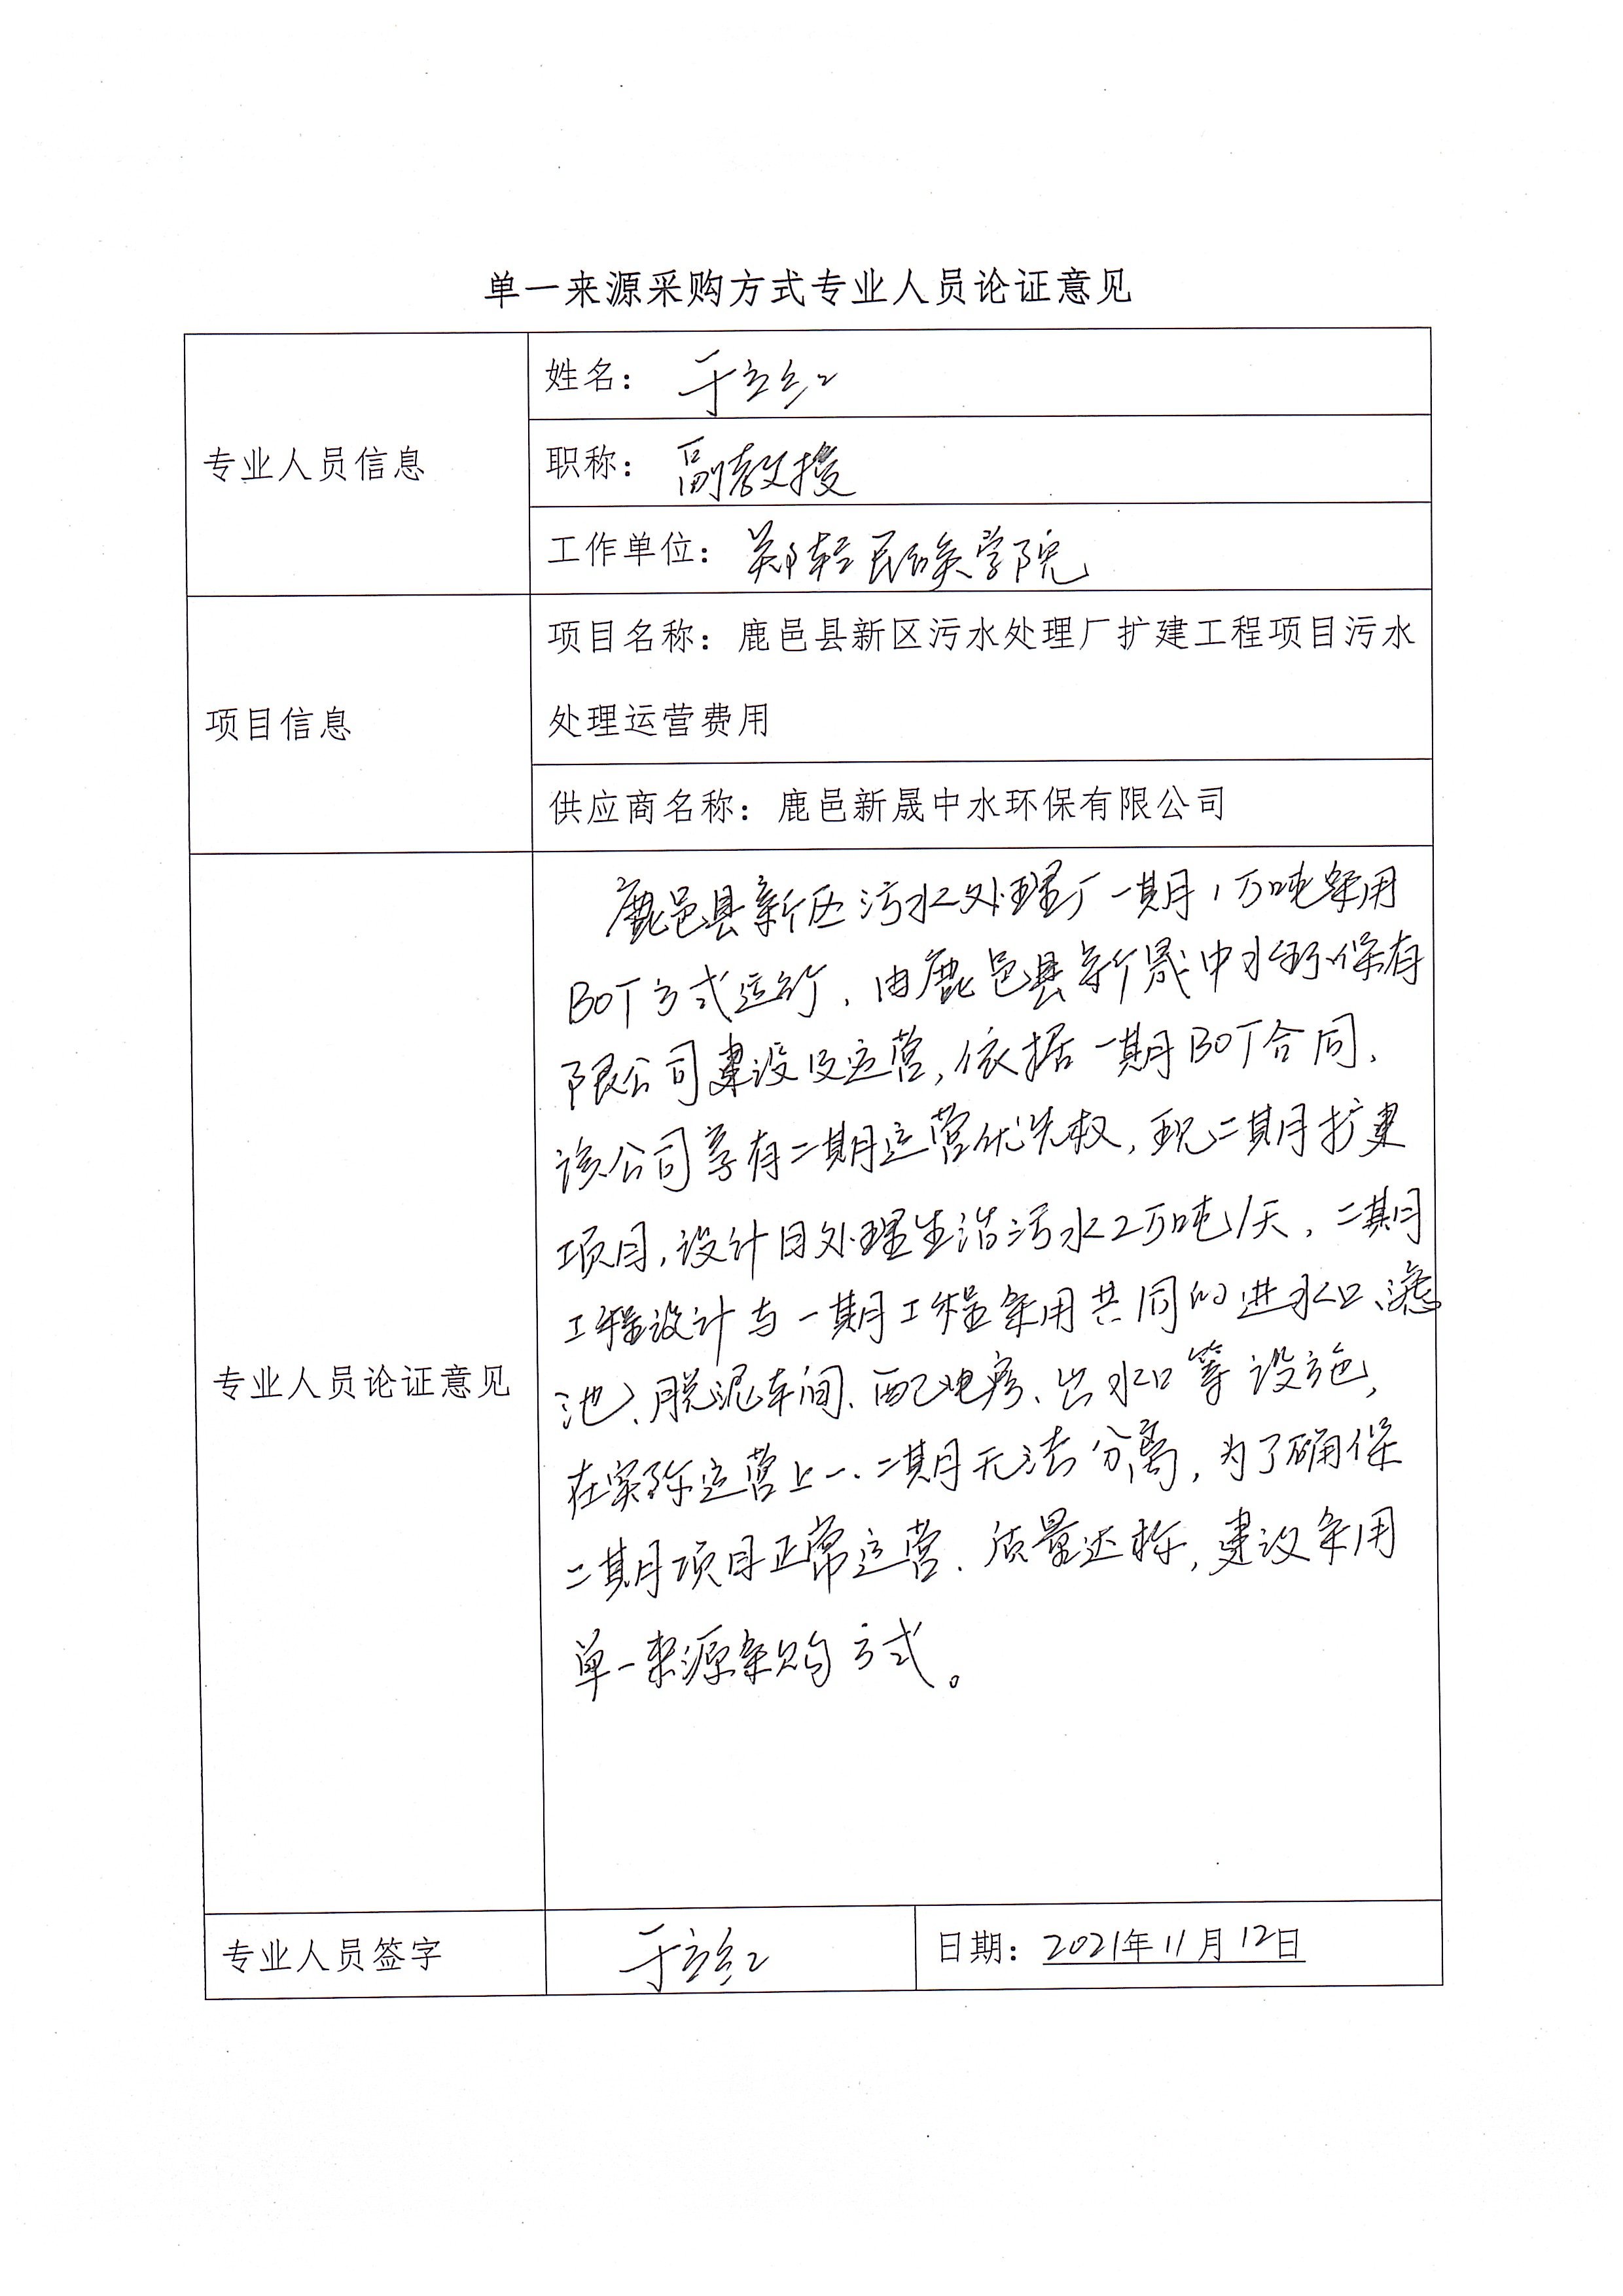 单一来源采购方式专业人员论证意见
专业人员信息
姓名：于立红
职称：副教授
工作单位：郑轻民族学院
项目信息
项目名称：鹿邑县新区污水处理厂扩建工程项目污水
处理运营费用
供应商名称：鹿邑新晟中水环保有限公司
专业人员论证意见
鹿邑县新区污水处理厂一期1万吨采用
BOT方式运行，由鹿邑县新晟中水环保有
限公司建设及运营，依据一期BOT合同，
该公司享有二期运营优先权，现二期扩建
项目，设计日处理生活污水2万吨/天，二期
工程设计与一期工程采用共同的进水口、滤
池、脱泥车间、配电房、出水口等设施，
在实际运营上一、二期无法分离，为了确保
二期项目正常运营、质量达标，建议采用
单一来源采购方式。
专业人员签字
于立红
日期：2021年11月12日